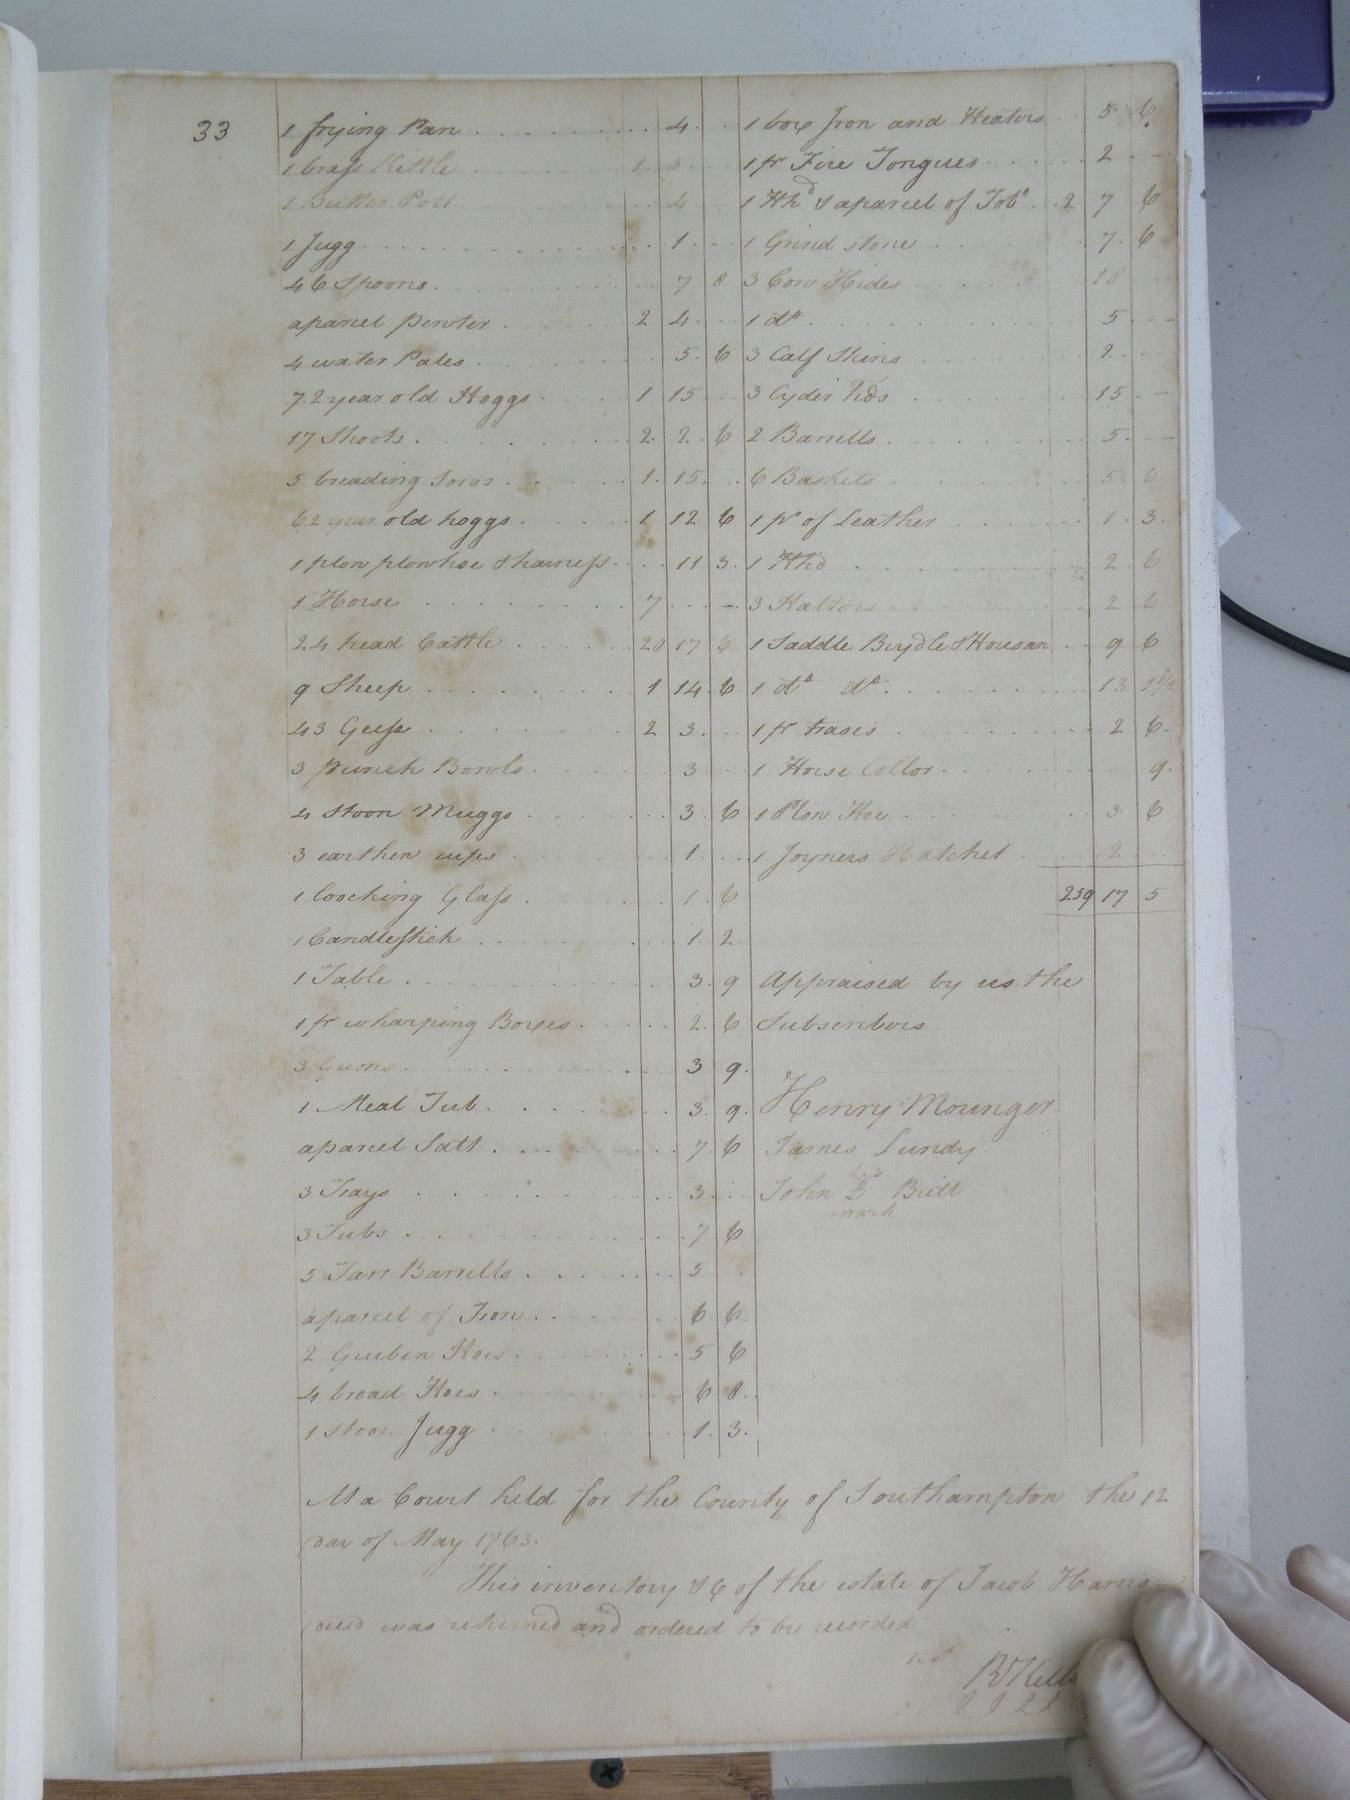 33
1 frying Pan 4
1 brass Kittle 1
1 Butter Pott 4
1 Jugg 1
46 Spoons 7 8
aparcel Pewter 2 4
4 water Pales 5 6
7. 2 year old Hoggs 1 15
17 Shoots 2 2 6
5 breading Sows 1 15
6 2 year old hoggs 1 12 6
1 plow plowhoe & harness 11 3
1 Horse 7 -
24 head Cattle 20 17 6
9 Sheep 1 14 6
43 Geess 2 3
3 punch Bowls 3
4 stoon Muggs 3 6
3 earthen cups 1
1 loocking Glass 1 6
1 Candlestick 1 2
1 Table 3 9
1 pr wharping Boxes 2 6
3 Gums 3 9
1 Meal Tub 3 9
aparcel Salt 7 6
3 Trays 3
3 Tubs 7 6
5 Tarr Barrells 5
aparcel of Iron 6 6
2 Gruben Hoes 5 6
4 broad Hoes 6 8
1 stoon Jugg 1 3
1 box Iron and Heaters 5 6
1 pr Fire Tongues 2 -
1 Hhd & aparcel of Tobo 2 7 6
1 Grind stone 7 6
3 Cow Hides 18
1 do 5 -
3 Calf Skins 2
3 Cyder hds 15 -
2 Barrells 5 -
6 Baskets 5 6
1 ps of Leather 1 3
1 Hhd 2 6
3 Haltors 2 6
1 Saddle Brydle & Housan 9 6
1 do do 13 1½
1 pr trases 2 6
1 Horse Collor 9
1 Plow Hoe 3 6
1 Joyners Hatchet 2
259 17 5
Appraised by us the
Subscribors
Henry Mounger
James Lundy
his
John B Britt
mark
At a Court held for the County of Southampton the 12
day of May 1763.
This inventory &c of the estate of Jacob Harris
decd was returned and ordered to be recorded